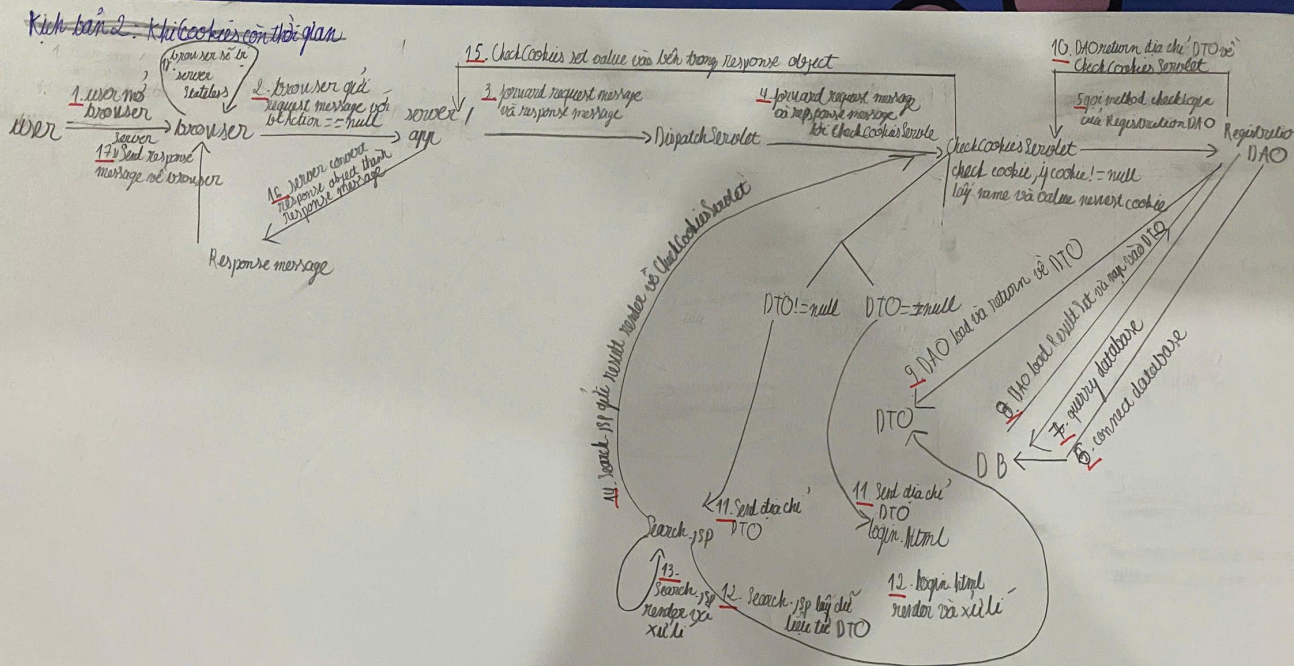 Kịch bản 2: Khi Cookies còn thời gian
browser sẽ bị
server
1. user mở
browser
user
server
17. Send response
message về browser
browser
2. browser gửi
request message với
btAction == null
server
app
16. server convert
response object thành
response message
Response message
15. CheckCookies set value vào bên trong response object
3. forward request message
và response message
DispatchServlet
4. forward request message
và response message
tới CheckCookiesServle
CheckCookiesServlet
check cookie, if cookie != null
lấy name và value newest cookie
10. DAO return địa chỉ DTO về
CheckCookiesServlet
5. gọi method checkLogin
của RegistrationDAO
Registratio
DAO
DTO != null
DTO == null
9. DAO load và return về DTO
8. DAO load Result Set và nạp vào DTO
7. querry database
6. connect database
DTO
DB
14. Search.jsp gửi result render về CheckCookiesServlet
11. Send địa chỉ
DTO
Search.jsp
11. Send địa chỉ
DTO
login.html
13.
Search.jsp
render và
xử lí
12. Search.jsp lấy dữ
liệu từ DTO
12. login.html
render và xử lí